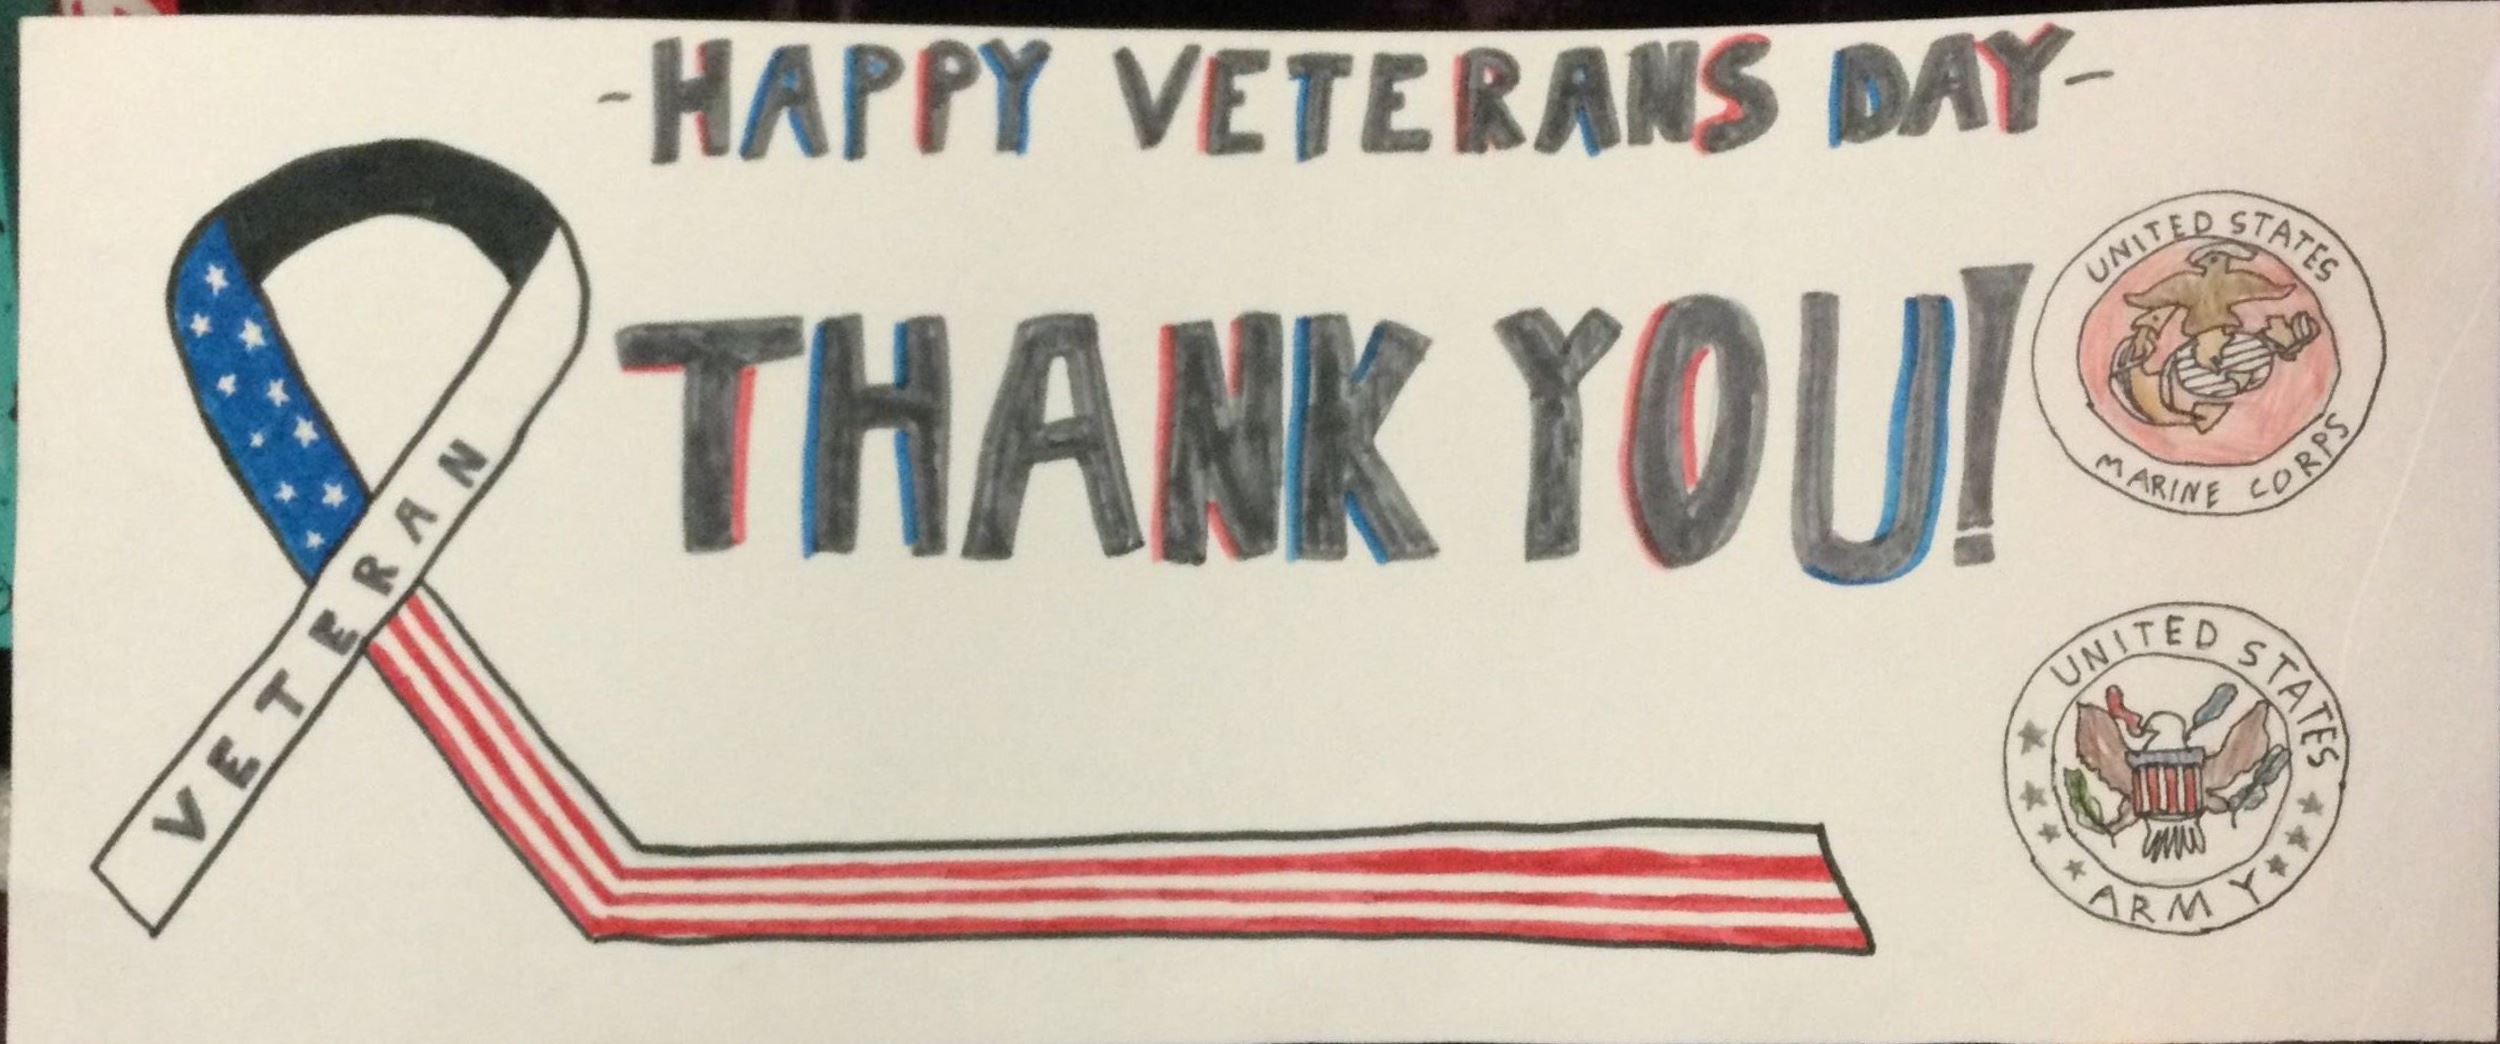 -HAPPY VETERANS DAY-
THANK YOU!
VETERAN
UNITED STATES
MARINE CORPS
UNITED STATES
ARMY